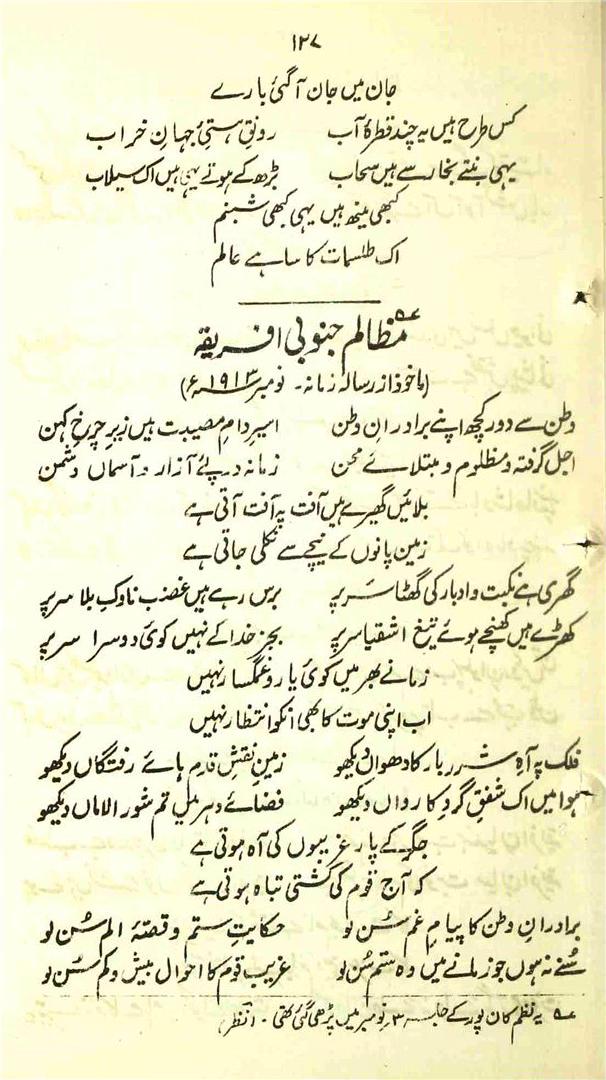 ۱۲۷
جان میں جان آ گئی بارے
کس طرح ہیں یہ چند قطرۂ آب رونقِ ہستیٔ جہانِ خراب
یہی بنتے بخار سے ہیں سحاب بڑھ کے ہوتے یہی ہیں اک سیلاب
کبھی مینھ ہیں یہی کبھی شبنم
اک طلسمات کا سا ہے عالم
مظالم جنوبی افریقہ ؎
(ماخوذ از رسالہ زمانہ۔ نومبر ۱۹۱۳ء)
وطن سے دور کچھ اپنے برادرانِ وطن اسیرِ دامِ مصیبت ہیں زیرِ چرخِ کہن
اجل گرفتہ و مظلوم و مبتلائے محن زمانہ درپئے آزار و آسماں دشمن
بلائیں گھیرے ہیں آفت پہ آفت آتی ہے
زمین پانوں کے نیچے سے نکلی جاتی ہے
گھری ہے نکبت و ادبار کی گھٹا سر پر برس رہے ہیں غضب ناوکِ بلا سر پر
کھڑے ہیں کھنچے ہوئے تیغ اشقیا سر پر بجز خدا کے نہیں کوئی دوسرا سر پر
زمانے بھر میں کوئی یار و غمگسار نہیں
اب اپنی موت کا بھی انکو انتظار نہیں
فلک پہ آہِ شرر بار کا دھواں دیکھو زمیں نقشِ قدم ہائے رفتگاں دیکھو
ہوا میں اک شفقِ گردِ کارواں دیکھو فضائے دہر میں تم شور الاماں دیکھو
جگر کے پار غریبوں کی آہ ہوتی ہے
کہ آج قوم کی کشتی تباہ ہوتی ہے
برادرانِ وطن کا پیامِ غم سُن لو حکایتِ ستم و قصۂ الم سُن لو
سُنے نہ ہوں جو زمانے میں وہ ستم سُن لو غریب قوم کا احوال بیش و کم سُن لو
؎ یہ نظم کان پور کے جلسہ ۳؍ نومبر میں پڑھی گئی تھی۔ (نظر)